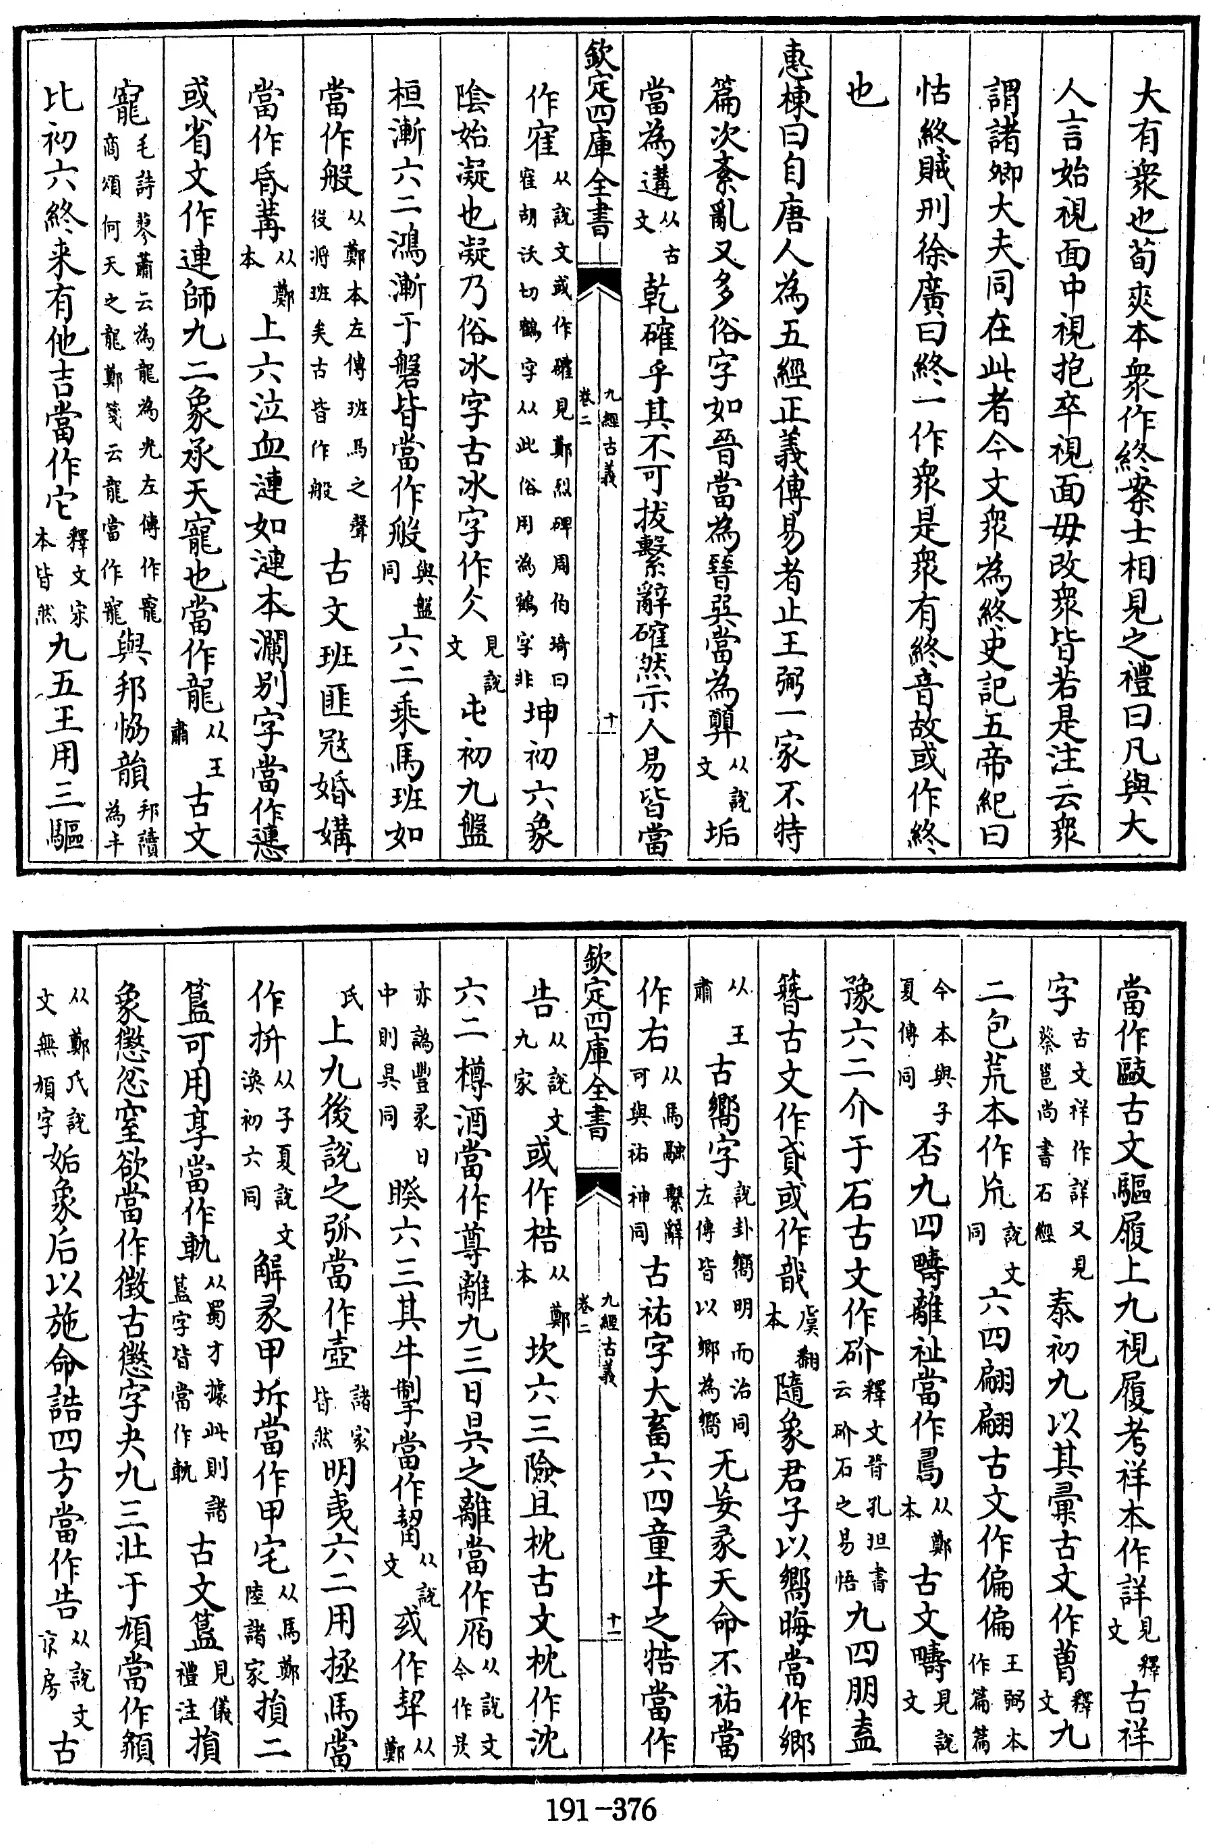 大有衆也荀爽本衆作終案士相見之禮曰凡與大
人言始視面中視抱卒視面毋改衆皆若是注云衆
謂諸卿大夫同在此者今文衆為終史記五帝紀曰
怙終賊刑徐廣曰終一作衆是衆有終音故或作終
也
惠棟曰自唐人為五經正義傳易者止王弼一家不特
篇次紊亂又多俗字如晉當為㬜巽當為顨从說文垢
當為遘从古文乾確乎其不可拔繫辭確然示人易皆當
欽定四庫全書 九經古義 卷二 十
作寉从說文或作確見鄭烈碑周伯琦曰寉胡沃切鶴字从此俗用為鶴字非坤初六象
陰始凝也凝乃俗冰字古冰字作仌見說文屯初九盤
桓漸六二鴻漸于磐皆當作般與盤同六二乘馬班如
當作般从鄭本左傳班馬之聲役將班矣古皆作般古文班匪冦婚媾
當作昏冓从鄭本上六泣血漣如漣本瀾别字當作㦁
或省文作連師九二象承天寵也當作龍从王肅古文
寵毛詩蓼蕭云為龍為光左傳作寵商頌何天之龍鄭箋云龍當作寵與邦恊韻邦讀為丰
比初六終来有他吉當作它釋文宋本皆然九五王用三驅
當作敺古文驅履上九視履考祥本作詳見釋文古祥
字古文祥作詳又見蔡邕尚書石經泰初九以其彙古文作曹釋文九
二包荒本作巟說文同六四翩翩古文作偏偏王弼本作篇篇
今本與子夏傳同否九四疇離祉當作𠷎从鄭本古文疇見說文
豫六二介于石古文作砎釋文晉孔坦書云砎石之易悟九四朋盍
簪古文作貸或作戠虞翻本隨象君子以嚮晦當作鄉
从王肅古嚮字說卦嚮明而治同左傳皆以鄉為嚮无妄彖天命不祐當
作右从馬融繫辭可與祐神同古祐字大畜六四童牛之牿當作
欽定四庫全書 九經古義 卷二 十一
告从說文九家或作梏从鄭本坎六三險且枕古文枕作沈
六二樽酒當作尊離九三日昃之離當作𣅔从說文今作昃
亦譌豐彖日中則昃同睽六三其牛掣當作觢从說文或作挈从鄭
氏上九後說之弧當作壺諸家皆然明夷六二用拯馬當
作抍从子夏說文渙初六同解彖甲坼當作甲宅从馬鄭陸諸家損二
簋可用享當作軌从蜀才據此則諸簋字皆當作軌古文簋見儀禮注損
象懲忿窒欲當作徵古懲字夬九三壯于頄當作頯
从鄭氏說文無頄字姤象后以施命誥四方當作告从說文京房古
191-376